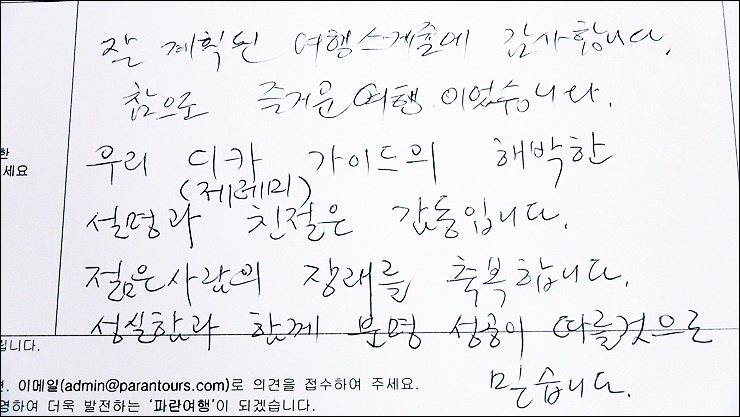 잘 계획된 여행스케줄에 감사합니다.
참으로 즐거운 여행 이었습니다.
우리 디카 가이드의 해박한
(제레미)
설명과 친절은 감동입니다.
젊은사람의 장래를 축복합니다.
성실함과 함께 분명 성공이 따를것으로
믿습니다.
한
세요
입니다.
견. 이메일(admin@parantours.com)로 의견을 접수하여 주세요.
영하여 더욱 발전하는 ‘파란여행’이 되겠습니다.